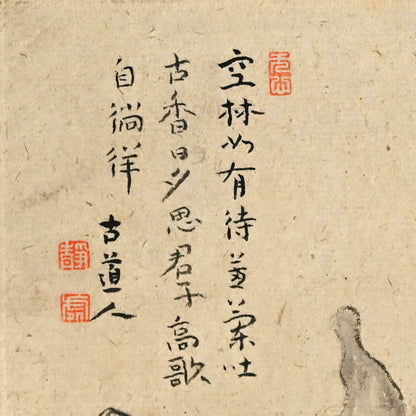 空林如有待蕙蘭吐
古香日夕思君子高歌
自徜徉
古道人